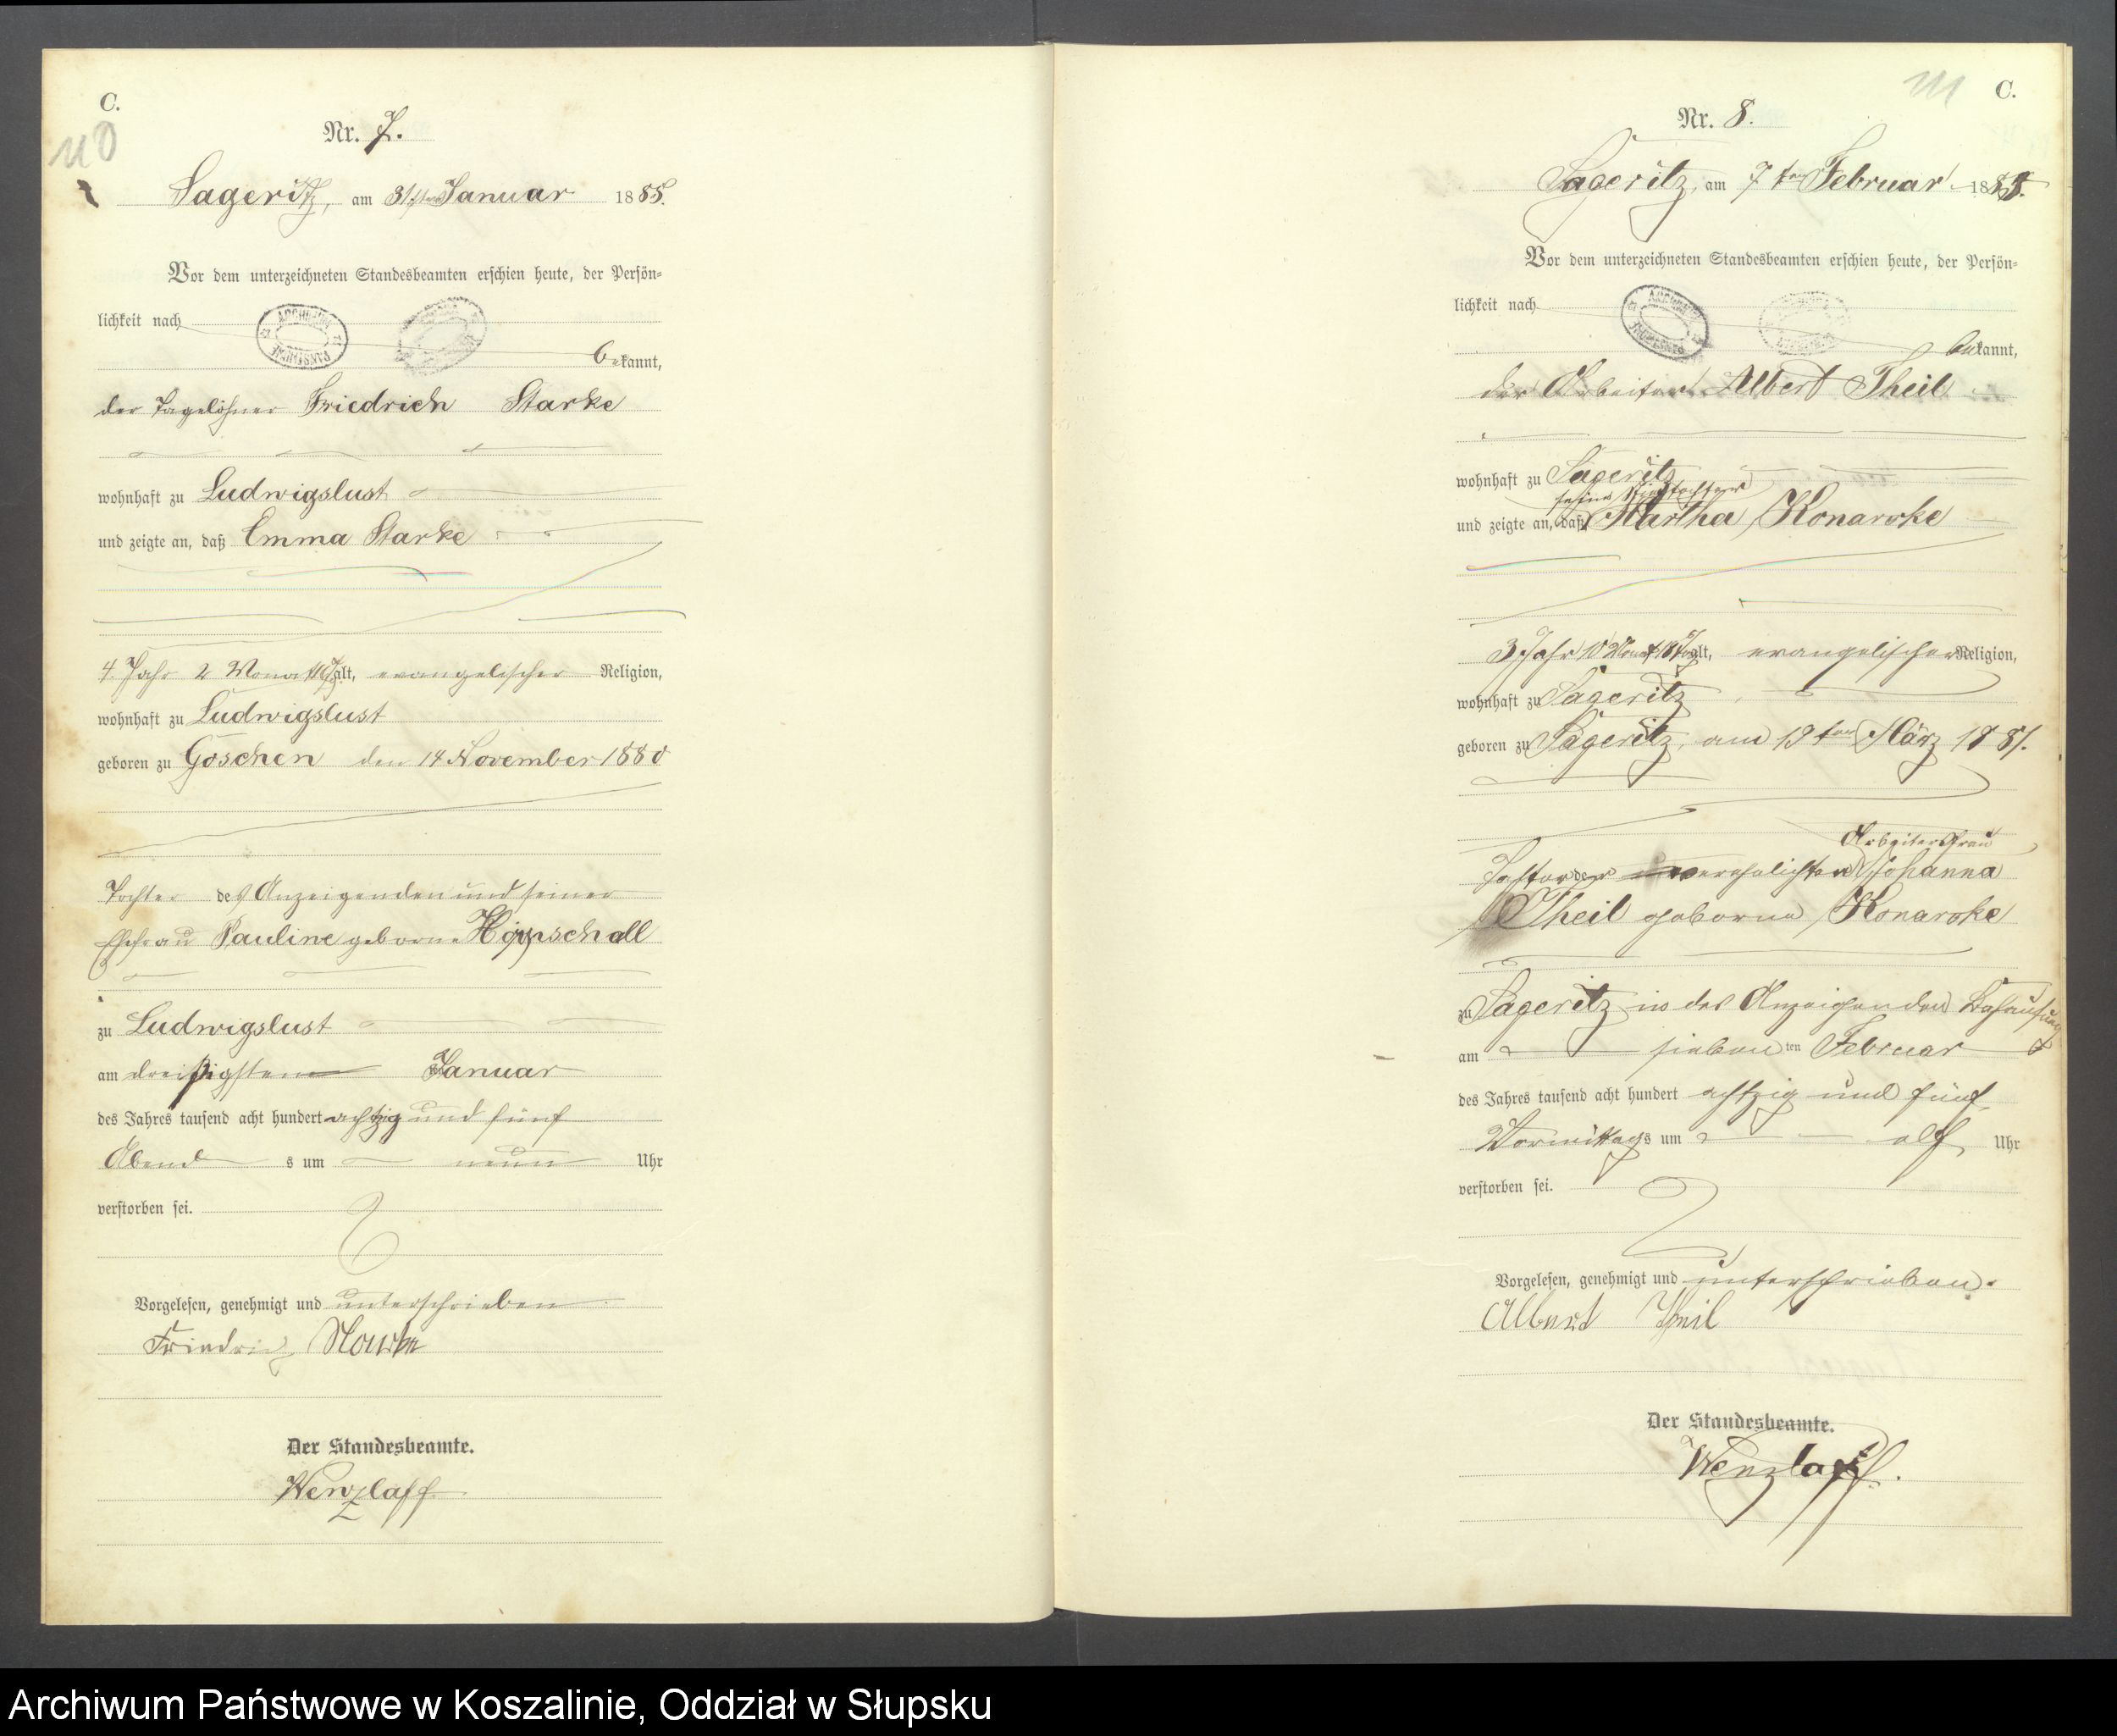 C.
110
Nr. 7.
Sageritz, am 31ten Januar 1885.
Vor dem unterzeichneten Standesbeamten erschien heute, der Persön-
lichkeit nach
bekannt,
der Tagelöhner Friedrich Starke
wohnhaft zu Ludwigslust
und zeigte an, daß Emma Starke
4 Jahr 2 Monat 16 T alt, evangelischer Religion,
wohnhaft zu Ludwigslust
geboren zu Göschen den 14 November 1880
Tochter des Anzeigenden und seiner
Ehefrau Pauline geborne
zu Ludwigslust
am dreißigsten Januar
des Jahres tausend acht hundert achtzig und fünf
Abends um neun Uhr
verstorben sei.
Vorgelesen, genehmigt und unterschrieben
Friedrich Starke
Der Standesbeamte.
Wenzlaff
111 C.
Nr. 8.
Sageritz, am 7ten Februar 1885.
Vor dem unterzeichneten Standesbeamten erschien heute, der Persön-
lichkeit nach
bekannt,
der Arbeiter Albert Theil
wohnhaft zu Sageritz
seine Stieftochter
und zeigte an, daß Martha Konarske
3 Jahr 10 Monat 18 Tag alt, evangelischer Religion,
wohnhaft zu Sageritz
geboren zu Sageritz, am 19ten März 1881.
Arbeiterfrau
Tochter der verehelichten Johanna
Theil geborne Konarske
zu Sageritz in des Anzeigenden Behausung
am siebenten Februar
des Jahres tausend acht hundert achtzig und fünf
Vormittags um elf Uhr
verstorben sei.
Vorgelesen, genehmigt und unterschrieben.
Albert Theil
Der Standesbeamte.
Wenzlaff.
Archiwum Państwowe w Koszalinie, Oddział w Słupsku